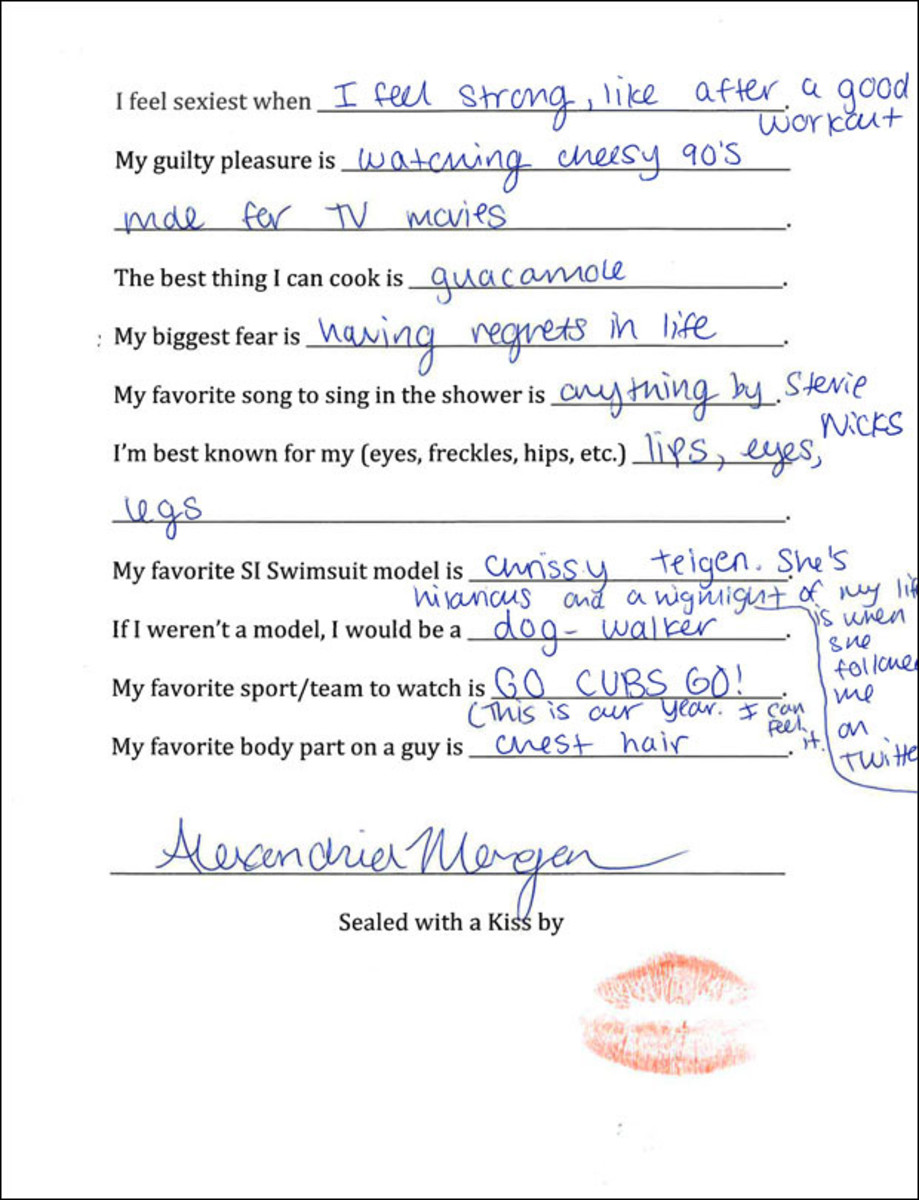 I feel sexiest when I feel strong, like after a good
workout
My guilty pleasure is watching cheesy 90's
mde for TV movies.
The best thing I can cook is guacamole.
My biggest fear is having regrets in life.
My favorite song to sing in the shower is anything by. Stevie
Nicks
I'm best known for my (eyes, freckles, hips, etc.) lips, eyes,
legs.
My favorite SI Swimsuit model is chrissy teigen. She's
hilarious and a highlight of my life
is when
she
followed
me
on
Twitter
If I weren't a model, I would be a dog-walker.
My favorite sport/team to watch is GO CUBS GO!.
(This is our year. I can
feel
it.
My favorite body part on a guy is chest hair.
Alexandria Morgan
Sealed with a Kiss by